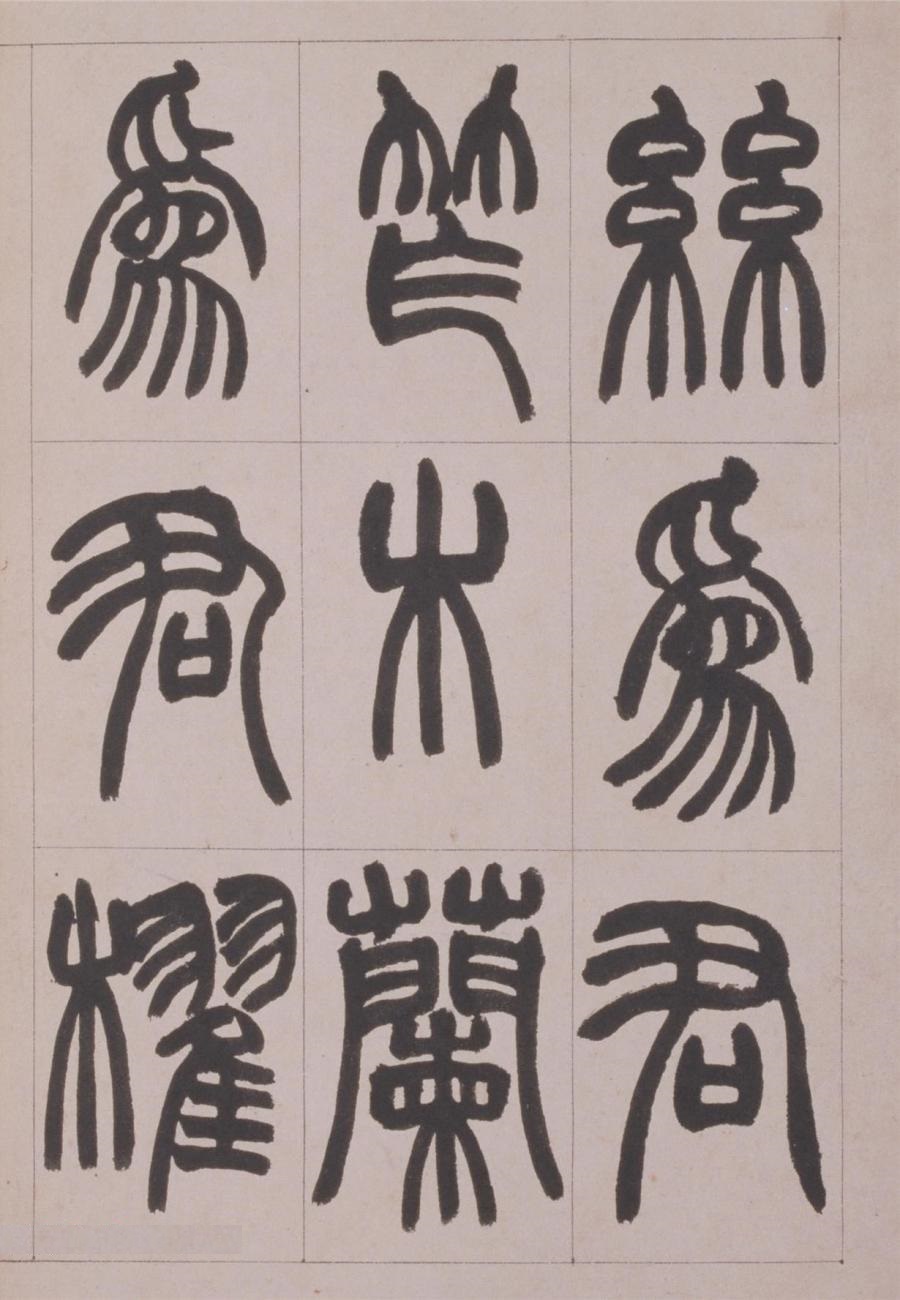 絲爲君
笮木蘭
爲君櫂